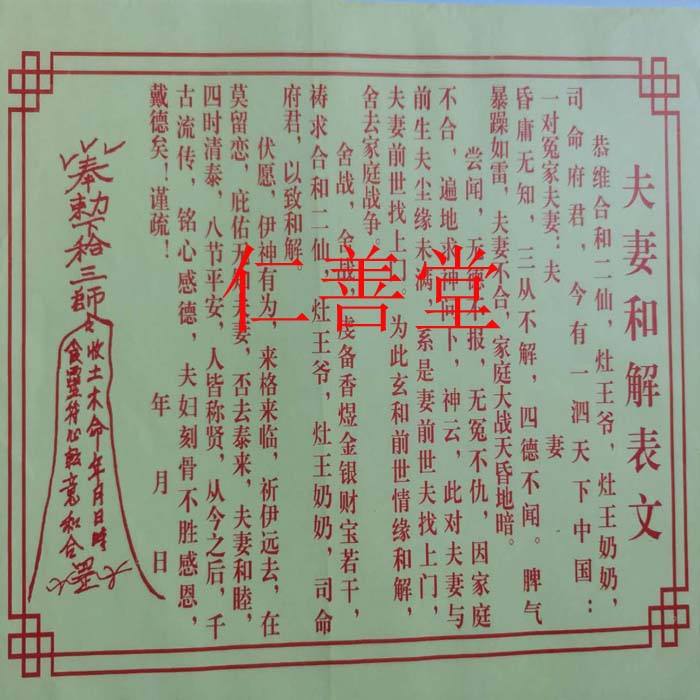 夫妻和解表文
恭维合和二仙，灶王爷，灶王奶奶，
司命府君，今有一泗天下中国：
一对冤家夫妻：夫　妻
昏庸无知，三从不解，四德不闻。脾气
暴躁如雷，夫妻不合，家庭大战天昏地暗。
尝闻，无德不报，无冤不仇，因家庭
不合，遍地求神问卜，神云，此对夫妻与
前生夫尘缘未满，系是妻前世夫找上门，
夫妻前世找上门。为此玄和前世情缘和解，
舍去家庭战争。
舍战，舍战，虔备香煜金银财宝若干，
祷求合和二仙，灶王爷，灶王奶奶，司命
府君，以致和解。
伏愿，伊神有为，来格来临，祈伊远去，在
莫留恋，庇佑夫妻，否去泰来，夫妻和睦，
四时清泰，八节平安，人皆称贤，从今之后，千
古流传，铭心感德，夫妇刻骨不胜感恩，
戴德矣！谨疏！
年　月　日
奉勅下裕三師
收土木命年月日時
食靈符心敦意和合
仁善堂